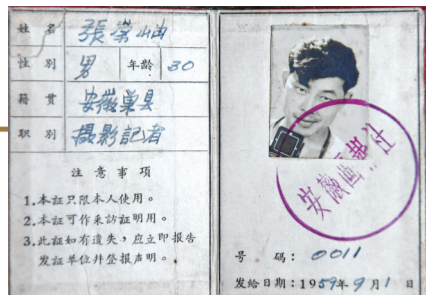 姓名 張荣山
性別 男 年龄 30
籍贯 安徽巢县
职別 攝影記者
注意事項
1.本証只限本人使用。
2.本証可作采訪証明用。
3.此証如有遺失，应立即报告
发証单位幷登报声明。
安徽画报社
号码：0011
发給日期：1959年9月1日